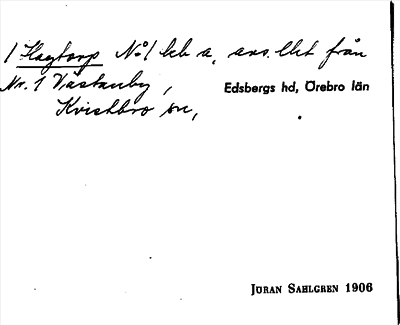 1 Hagtorp No 1 lcb a, avs. lht från
Nr. 1 Västanby, Edsbergs hd, Örebro län
Kvistbro sn,
JÖRAN SAHLGREN 1906